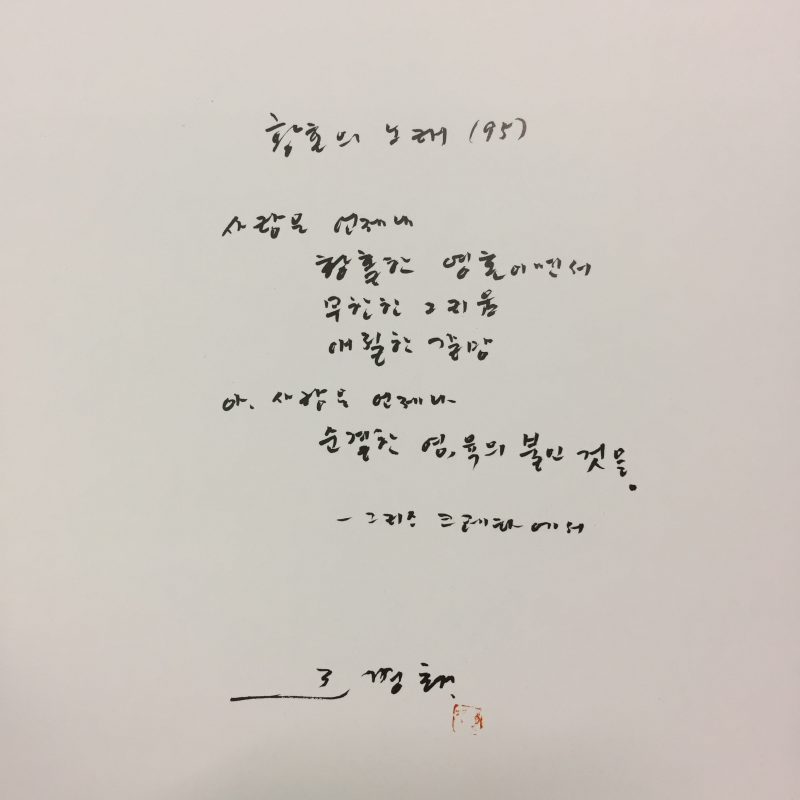 황혼의 노래 (95)
사랑은 언제나
황홀한 영혼이면서
무한한 그리움
애릿한 갈망
아, 사랑은 언제나
순결한 영, 육의 불인 것을.
- 그리스 크레타에서
조병화